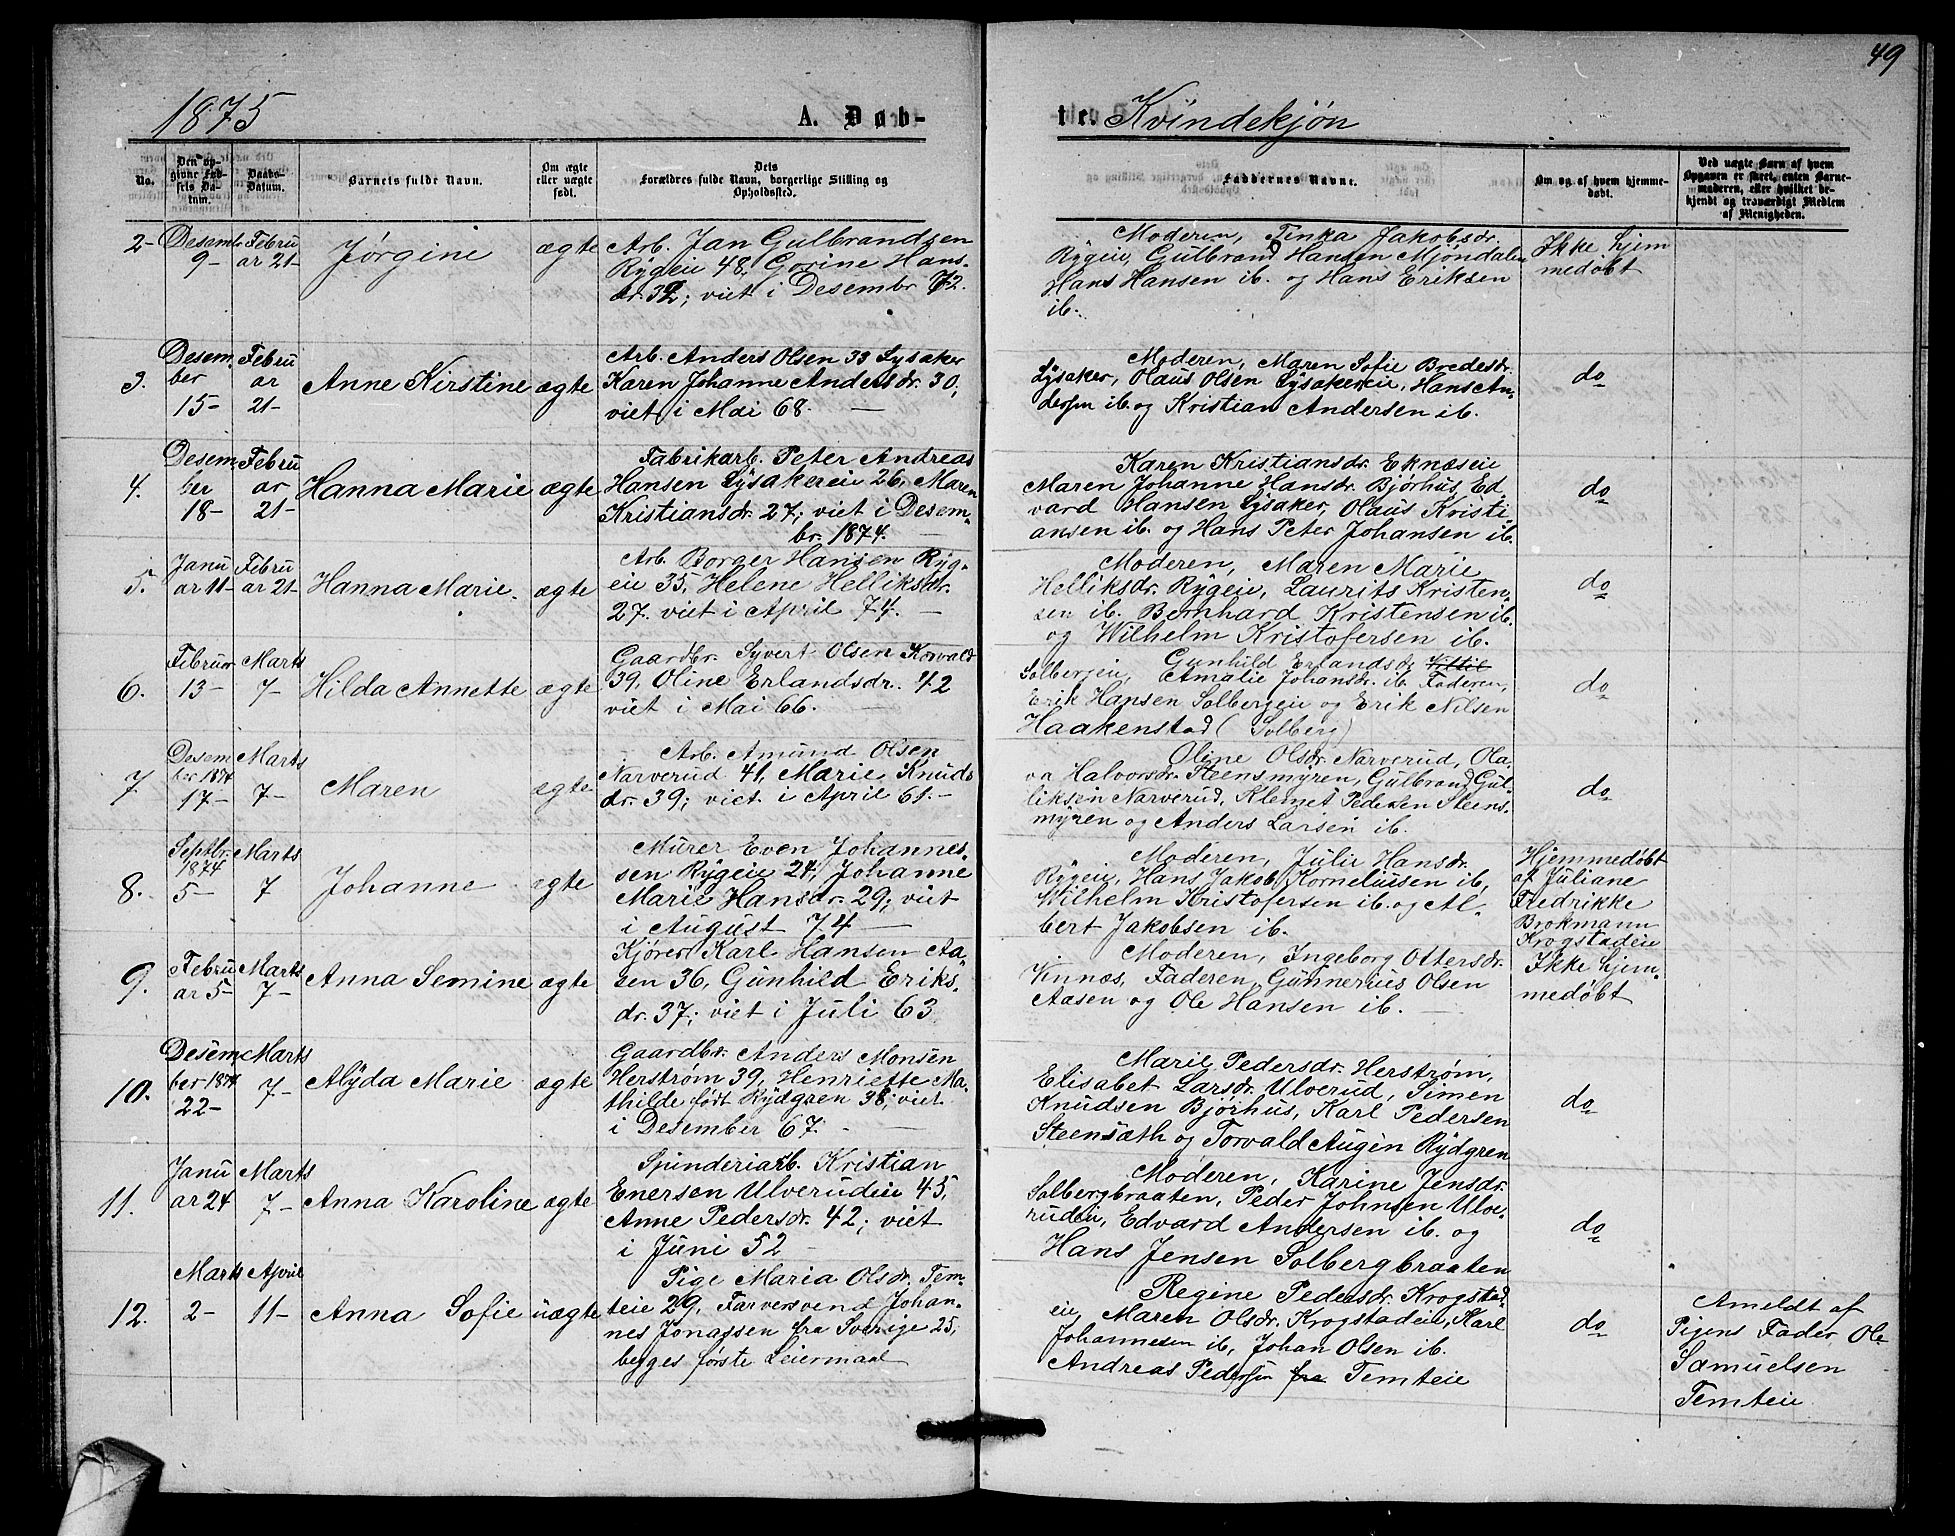 49
1875
A. Døb-
te. Kvindekjøn
No.
Den op-
givne Fød-
sels Da-
tum.
Daabs-
Datum.
Barnets fulde Navn.
Om ægte
eller uægte
født.
Dets
Forældres fulde Navn, borgerlige Stilling og
Opholdssted.
Faddernes Navne.
Om og af hvem hjemme-
døbt.
Ved uægte Barn af hvem
Opgaven er skeet, enten Barne-
moderen, eller hvilket be-
kjendt og troværdigt Medlem
af Menigheden.
2-
Desembr
9-
Febru
ar 21-
Jørgine
ægte
Arb. Jan Gulbrandsen
Rygeie 48, Gorine Hans-
dr. 32; viet i Desembr 72.
Moderen, Tinka Jakobsdr.
Rygeie, Gulbrand Hansen Mjøndalen
Hans Hansen ib. og Hans Eriksen
ib.
Ikke hjem
medøbt
3.
Desem-
ber
15-
Febru
ar
21-
Anne Kirstine
ægte
Arb. Anders Olsen 33 Lysaker
Karen Johanne Andersdr. 30,
viet i Mai 68.
Moderen, Maren Sofie Bredesdr.
Lysaker, Olaus Olsen Lysakereie, Hans An-
dersen ib. og Kristian Andersen ib.
do
4.
Desem
ber
18-
Febru
ar
21-
Hanna Marie
ægte
Fabrikarb. Peter Andreas
Hansen Lysakereie 26, Maren
Kristiansdr. 27; viet i Desem-
br. 1874.
Karen Kristiansdr. Eknæseie
Maren Johanne Hansdr. Bjørhus, Ed-
vard Hansen Lysaker, Olaus Kristi
ansen ib. og Hans Peter Johansen ib.
do
5.
Janu
ar 11-
Febru
ar 21-
Hanna Marie.
ægte
Arb. Borger Hansen Ryg-
eie 35, Helene Helliksdr.
27. viet i April 74.
Moderen, Maren Marie
Helliksdr. Rygeie, Laurits Kristen-
sen ib. Bernhard Kristensen ib.
og Wilhelm Kristofersen ib.
do
6.
Februar
13-
Marts
7-
Hilda Annette
ægte
Gaardbr. Syvert Olsen Korvald
39, Oline Erlandsdr. 42
viet i Mai 66.
Gunhild Erlandsdr
Solbergeie, Amalie Johansdr. ib. Faderen,
Erik Hansen Solbergeie og Erik Nilsen
Haakenstad (Solberg)
do
7.
Desem
ber 1874
17-
Marts
7-
Maren
ægte
Arb. Amund Olsen
Narverud 41, Marie Knuds
dr. 39; viet i April 61.-
Oline Olsdr. Narverud, Ola-
va Halvorsdr. Steensmyren, Gulbrand Gul-
liksen Narverud, Klemet Pedersen Steens-
myren og Anders Larsen ib.
do
8.
Septbr.
1874
5-
Marts
7
Johanne
ægte
Murer Even Johannes-
sen Rygeie 24, Johanne
Marie Hansdr. 29; viet
i August 74
Moderen, Julie Hansdr.
Rygeie, Hans Jakob Korneliussen ib,
Wilhelm Kristofersen ib. og Al-
bert Jakobsen ib.
Hjemmedøbt
af Juliane
Fredrikke
Brokmann
Krogstadeie
9.
Febru
ar 5-
Marts
7-
Anna Semine
ægte
Kjører Karl Hansen Aa-
sen 36, Gunhild Eriks-
dr. 37; viet i Juli 63
Moderen, Ingeborg Ottersdr.
Vinnæs, Faderen, Gunnerius Olsen
Aasen og Ole Hansen ib.
Ikke hjem-
medøbt
10.
Desem
ber 1874
22-
Marts
7-
Alyda Marie
ægte
Gaardbr. Anders Monsen
Herstrøm 39, Henriette Ma-
thilde født Rydgren 38; viet
i Desember 67.
Marie Pedersdr. Herstrøm,
Elisabet Larsdr. Ulverud, Simen
Knudsen Bjørhus, Karl Pedersen
Steensæth og Torvald Augen Rydgren
do
11.
Janu
ar 24
Marts
7-
Anna Karoline
ægte
Spinderiarb. Kristian
Enersen Ulverudeie 45,
Anne Pedersdr. 42; viet
i Juni 52
Moderen, Karine Jensdr.
Solbergbraaten, Peder Johnsen Ulve-
rudeie, Edvard Andersen ib. og
Hans Jensen Solbergbraaten
do
12.
Marts
2-
April
11-
Anna Sofie
uægte
Pige Maria Olsdr. Tem-
teie 29, Farversvend Johan-
nes Jonassen fra Sverige 25,
begges første Leiermaal
Regine Pedersdr. Krogstad-
eie, Maren Olsdr. Krogstadeie, Karl
Johannesen ib, Johan Olsen ib.
Andreas Pedersen fra Temteie
do
Ameldt af
Pigens Fader Ole
Samuelsen
Temteie